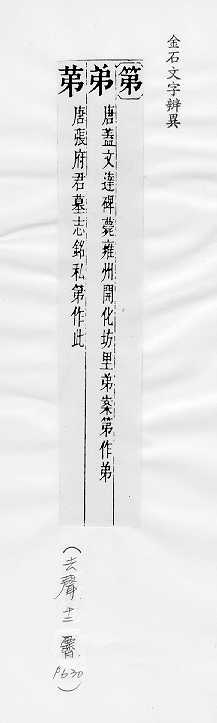 金石文字辨異
【第】
弟 唐蓋文達碑薨雍州開化坊里弟案第作弟
苐 唐張府君墓志銘私第作此
(去聲十二霽 P630)